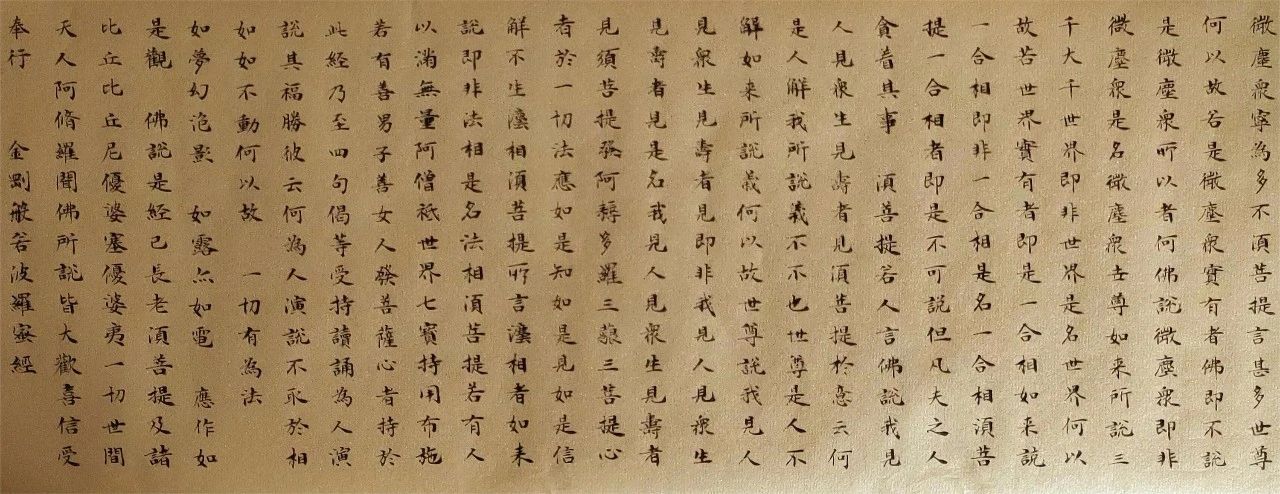 微塵衆寧為多不湏菩提言甚多世尊
何以故若是微塵衆實有者佛即不說
是微塵衆所以者何佛說微塵衆即非
微塵衆是名微塵衆世尊如来所說三
千大千世界即非世界是名世界何以
故若世界實有者即是一合相如来說
一合相即非一合相是名一合相湏菩
提一合相者即是不可說但凡夫之人
貪着其事　湏菩提若人言佛說我見
人見衆生見壽者見湏菩提於意云何
是人解我所說義不不也世尊是人不
解如来所說義何以故世尊說我見人
見衆生見壽者見即非我見人見衆生
見壽者見是名我見人見衆生見壽者
見須菩提發阿耨多羅三藐三菩提心
者於一切法應如是知如是見如是信
解不生灋相湏菩提所言灋相者如来
說即非法相是名法相湏菩提若有人
以滿無量阿僧祇世界七寳持用布施
若有善男子善女人發菩薩心者持於
此經乃至四句偈等受持讀誦為人演
說其福勝彼云何為人演說不取於相
如如不動何以故　一切有為法
如夢幻泡影　如露亦如電　應作如
是觀　佛說是經已長老湏菩提及諸
比丘比丘尼優婆塞優婆夷一切世間
天人阿脩羅聞佛所說皆大歡喜信受
奉行　金剛般若波羅蜜經